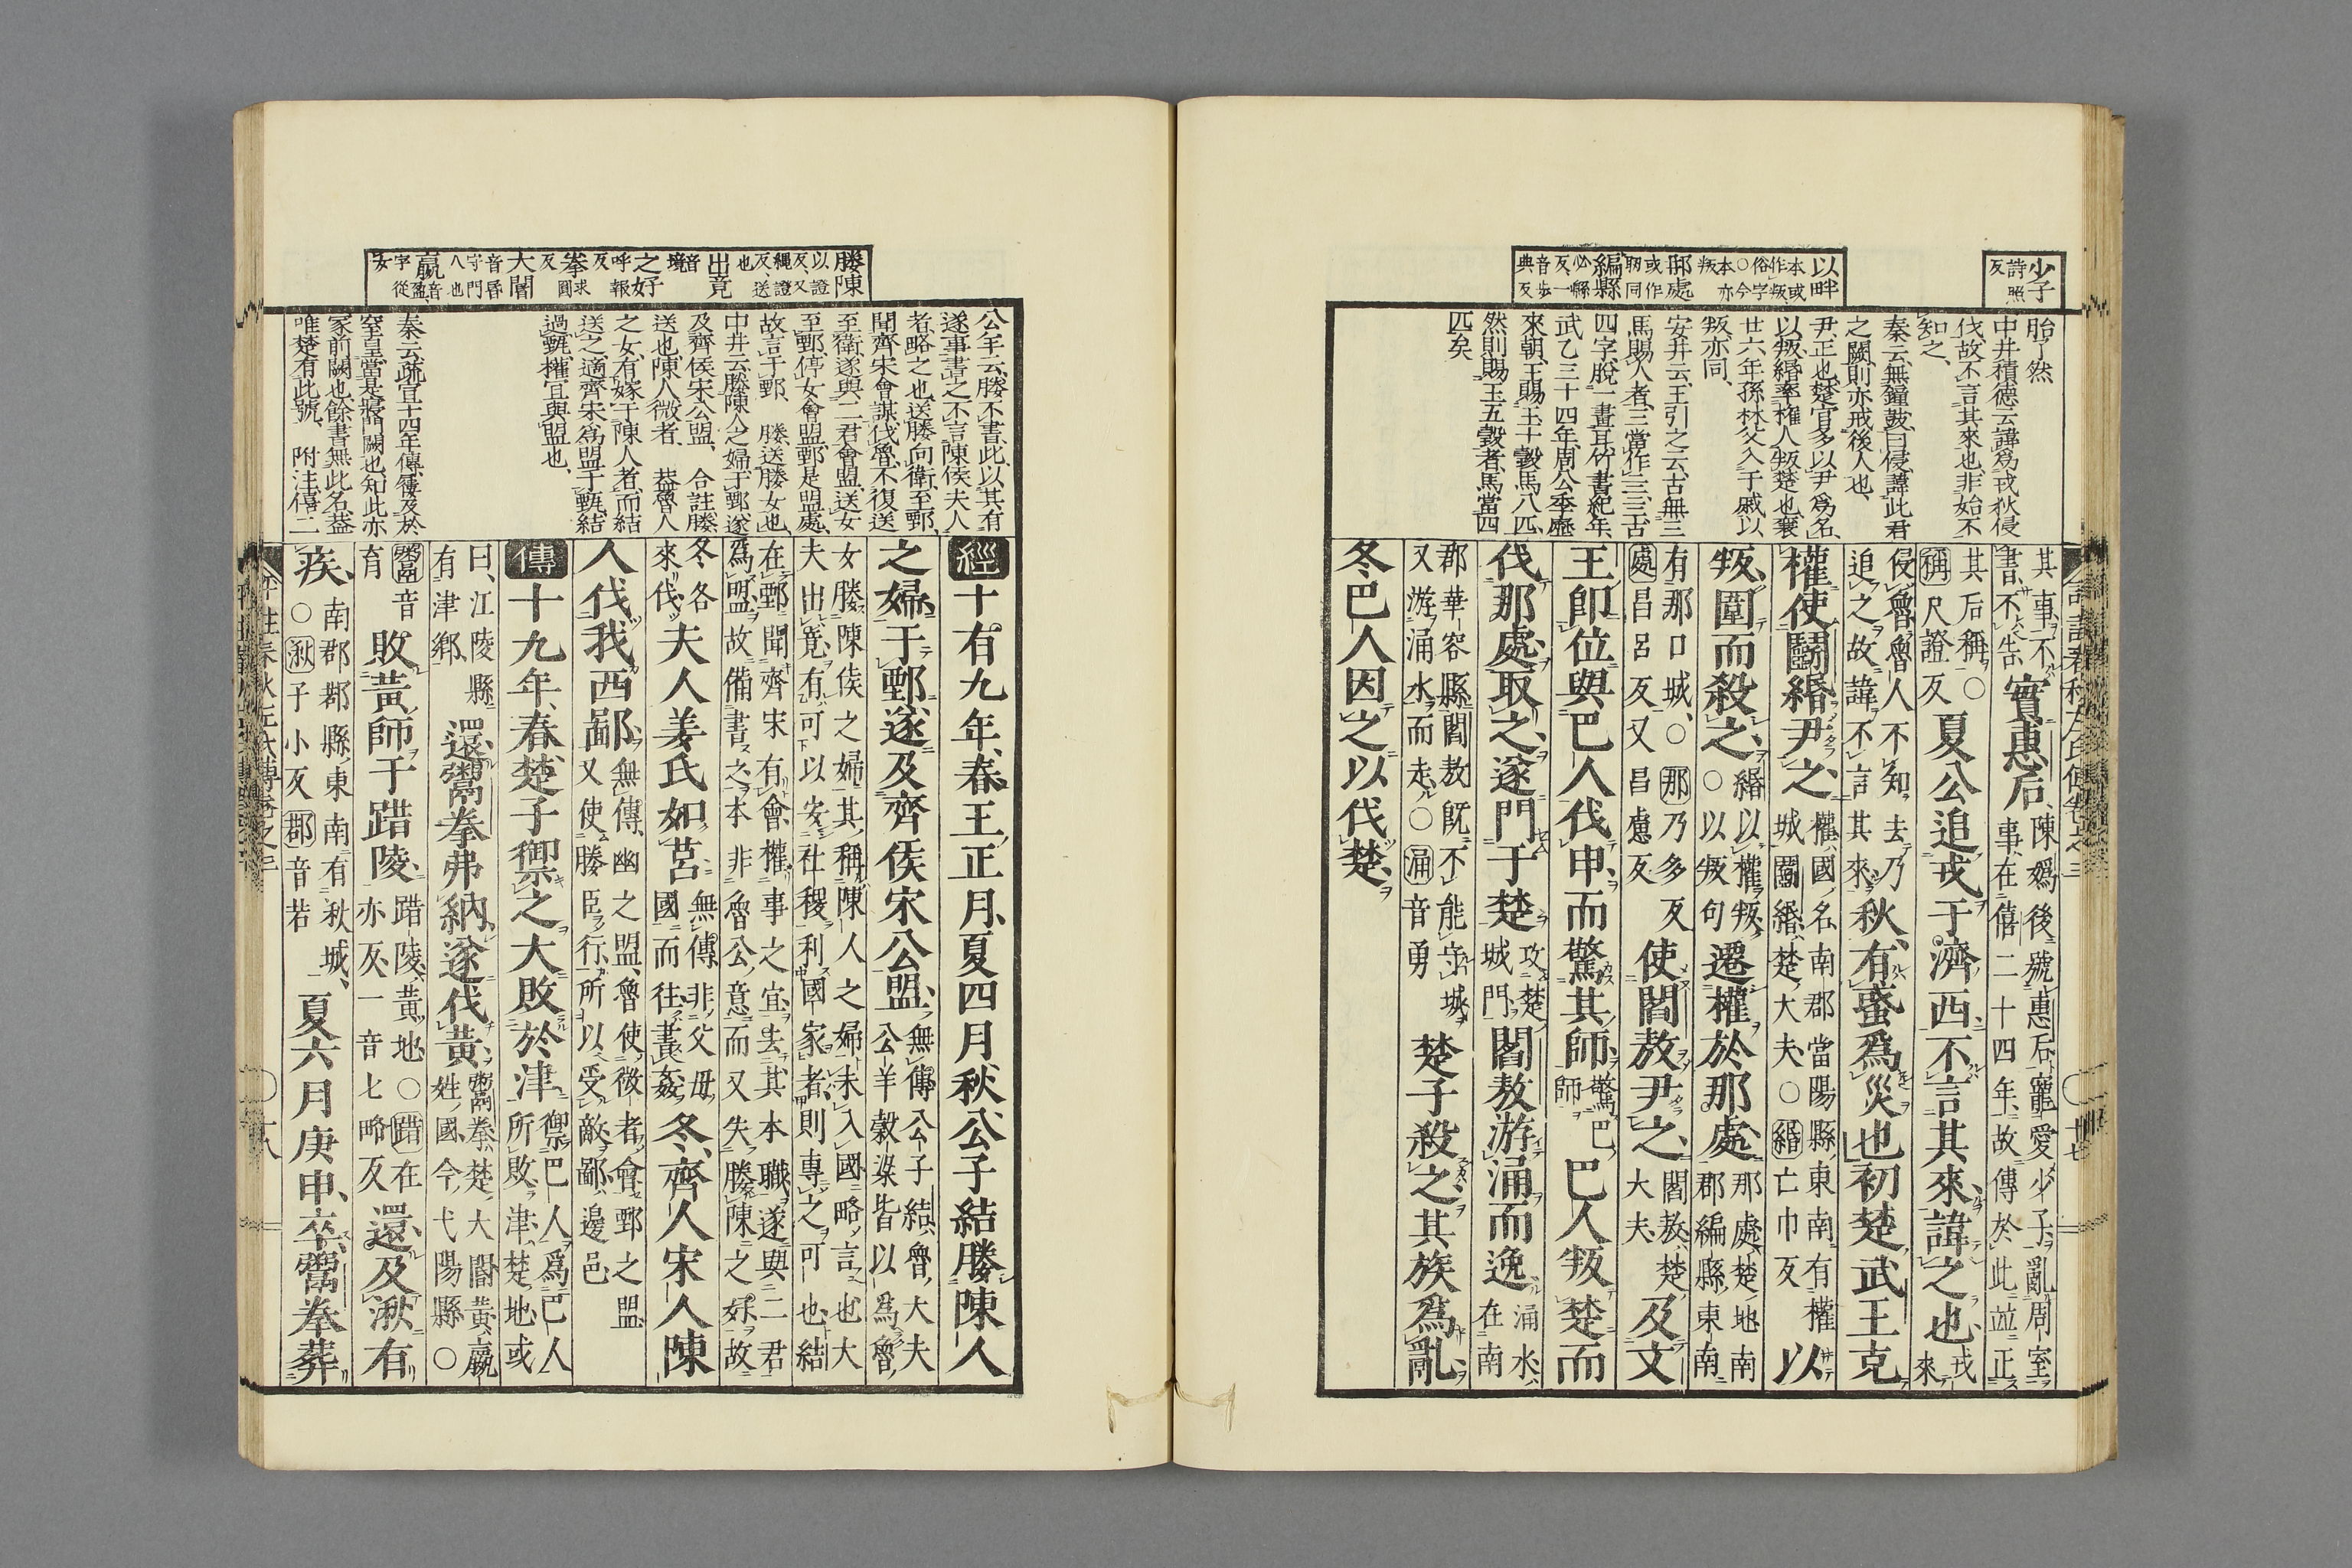 少子
詩照
反
以畔
本或
作叛
俗字
○今
本亦
叛
那處
或作
䎽同
編縣
必緜
反一
音歩
典反
胎了然
中井積德云諱爲戎狄侵
伐故不言其來也非始不
知之
秦云無鐘鼓曰侵諱此君
之闕則亦戒後人也
尹正也楚官多以尹爲名
以叛緡率權人叛楚也襄
廿六年孫林父入于戚以
叛亦同
安井云王引之云古無三
馬賜人者三當作亖亖古
四字脫一畫耳竹書紀年
武乙三十四年周公季歷
來朝王賜玉十瑴馬八匹
然則賜玉五瑴者馬當四
匹矣
其事不
書不告
實惠后
陳嬀後號惠后寵愛少子亂周室
事在僖二十四年故傳於此竝正
其后稱○
稱尺證反
夏公追戎于濟西不言其來諱之也
戎來
侵魯魯人不知去乃
追之故諱不言其來
秋有䘌爲災也初楚武王克
權使鬬緡尹之
權國名南郡當陽縣東南有權
城鬬緡楚大夫○緡亡巾反
以
叛圍而殺之
緡以權叛
○以叛句
遷權於那處
那處楚地南
郡編縣東南
有那口城○那乃多反
處昌呂反又昌慮反
使閻敖尹之
閻敖楚
大夫
及文
王卽位與巴人伐申而驚其師
驚巴
師
巴人叛楚而
伐那處取之遂門于楚
攻楚
城門
閻敖游涌而逸
涌水
在南
郡華容縣閻敖既不能守城
又游涌水而走○涌音勇
楚子殺之其族爲亂
冬巴人因之以伐楚
媵陳
以證
反又
繩證
反送
也
出竟
音境
之好
呼報
反
拳
求圓
反
大閽
音昏
守門
人也
嬴
音盈
字從
女
公羊云媵不書此以其有
遂事書之不言陳侯夫人
者略之也送媵向衛至鄄
聞齊宋會謀伐魯不復送
至衛遂與二君會盟送女
至鄄停女會盟鄄是盟處
故言于鄄　媵送媵女也
中井云媵陳人之婦于鄄遂
及齊侯宋公盟　合註媵
送也陳人微者　葢魯人
之女有嫁于陳人者而結
送之適齊宋爲盟于甄結
過甄權宜與盟也
秦云疏宣十四年傳屨及於
窒皇當是寢門闕也知此亦
冢前闕也餘書無此名葢
唯楚有此號　附注僖二
經十有九年春王正月夏四月秋公子結媵陳人
之婦于鄄遂及齊侯宋公盟
無傳公子結魯大夫
公羊穀梁皆以爲魯
女媵陳侯之婦其稱陳人之婦未入國略言也大
夫出竟有可以安社稷利國家者則專之可也結
在鄄聞齊宋有會權事之宜去其本職遂與二君
爲盟故備書之本非魯公意而又失媵陳之好故
冬各
來伐
夫人姜氏如莒
無傳非父母
國而往書姦
冬齊人宋人陳
人伐我西鄙
無傳幽之盟魯使微者會鄄之盟
又使媵臣行所以受敵鄙邊邑
傳十九年春楚子禦之大敗於津
禦巴人爲巴人
所敗津楚地或
曰江陵縣
有津鄉
還鬻拳弗納遂伐黃
鬻拳楚大閽黃嬴
姓國今弋陽縣○
鬻音
育
敗黃師于踖陵
踖陵黃地○踖在
亦反一音七略反
還及湫有
疾
南郡鄀縣東南有秋城
○湫子小反鄀音若
夏六月庚申卒鬻拳葬